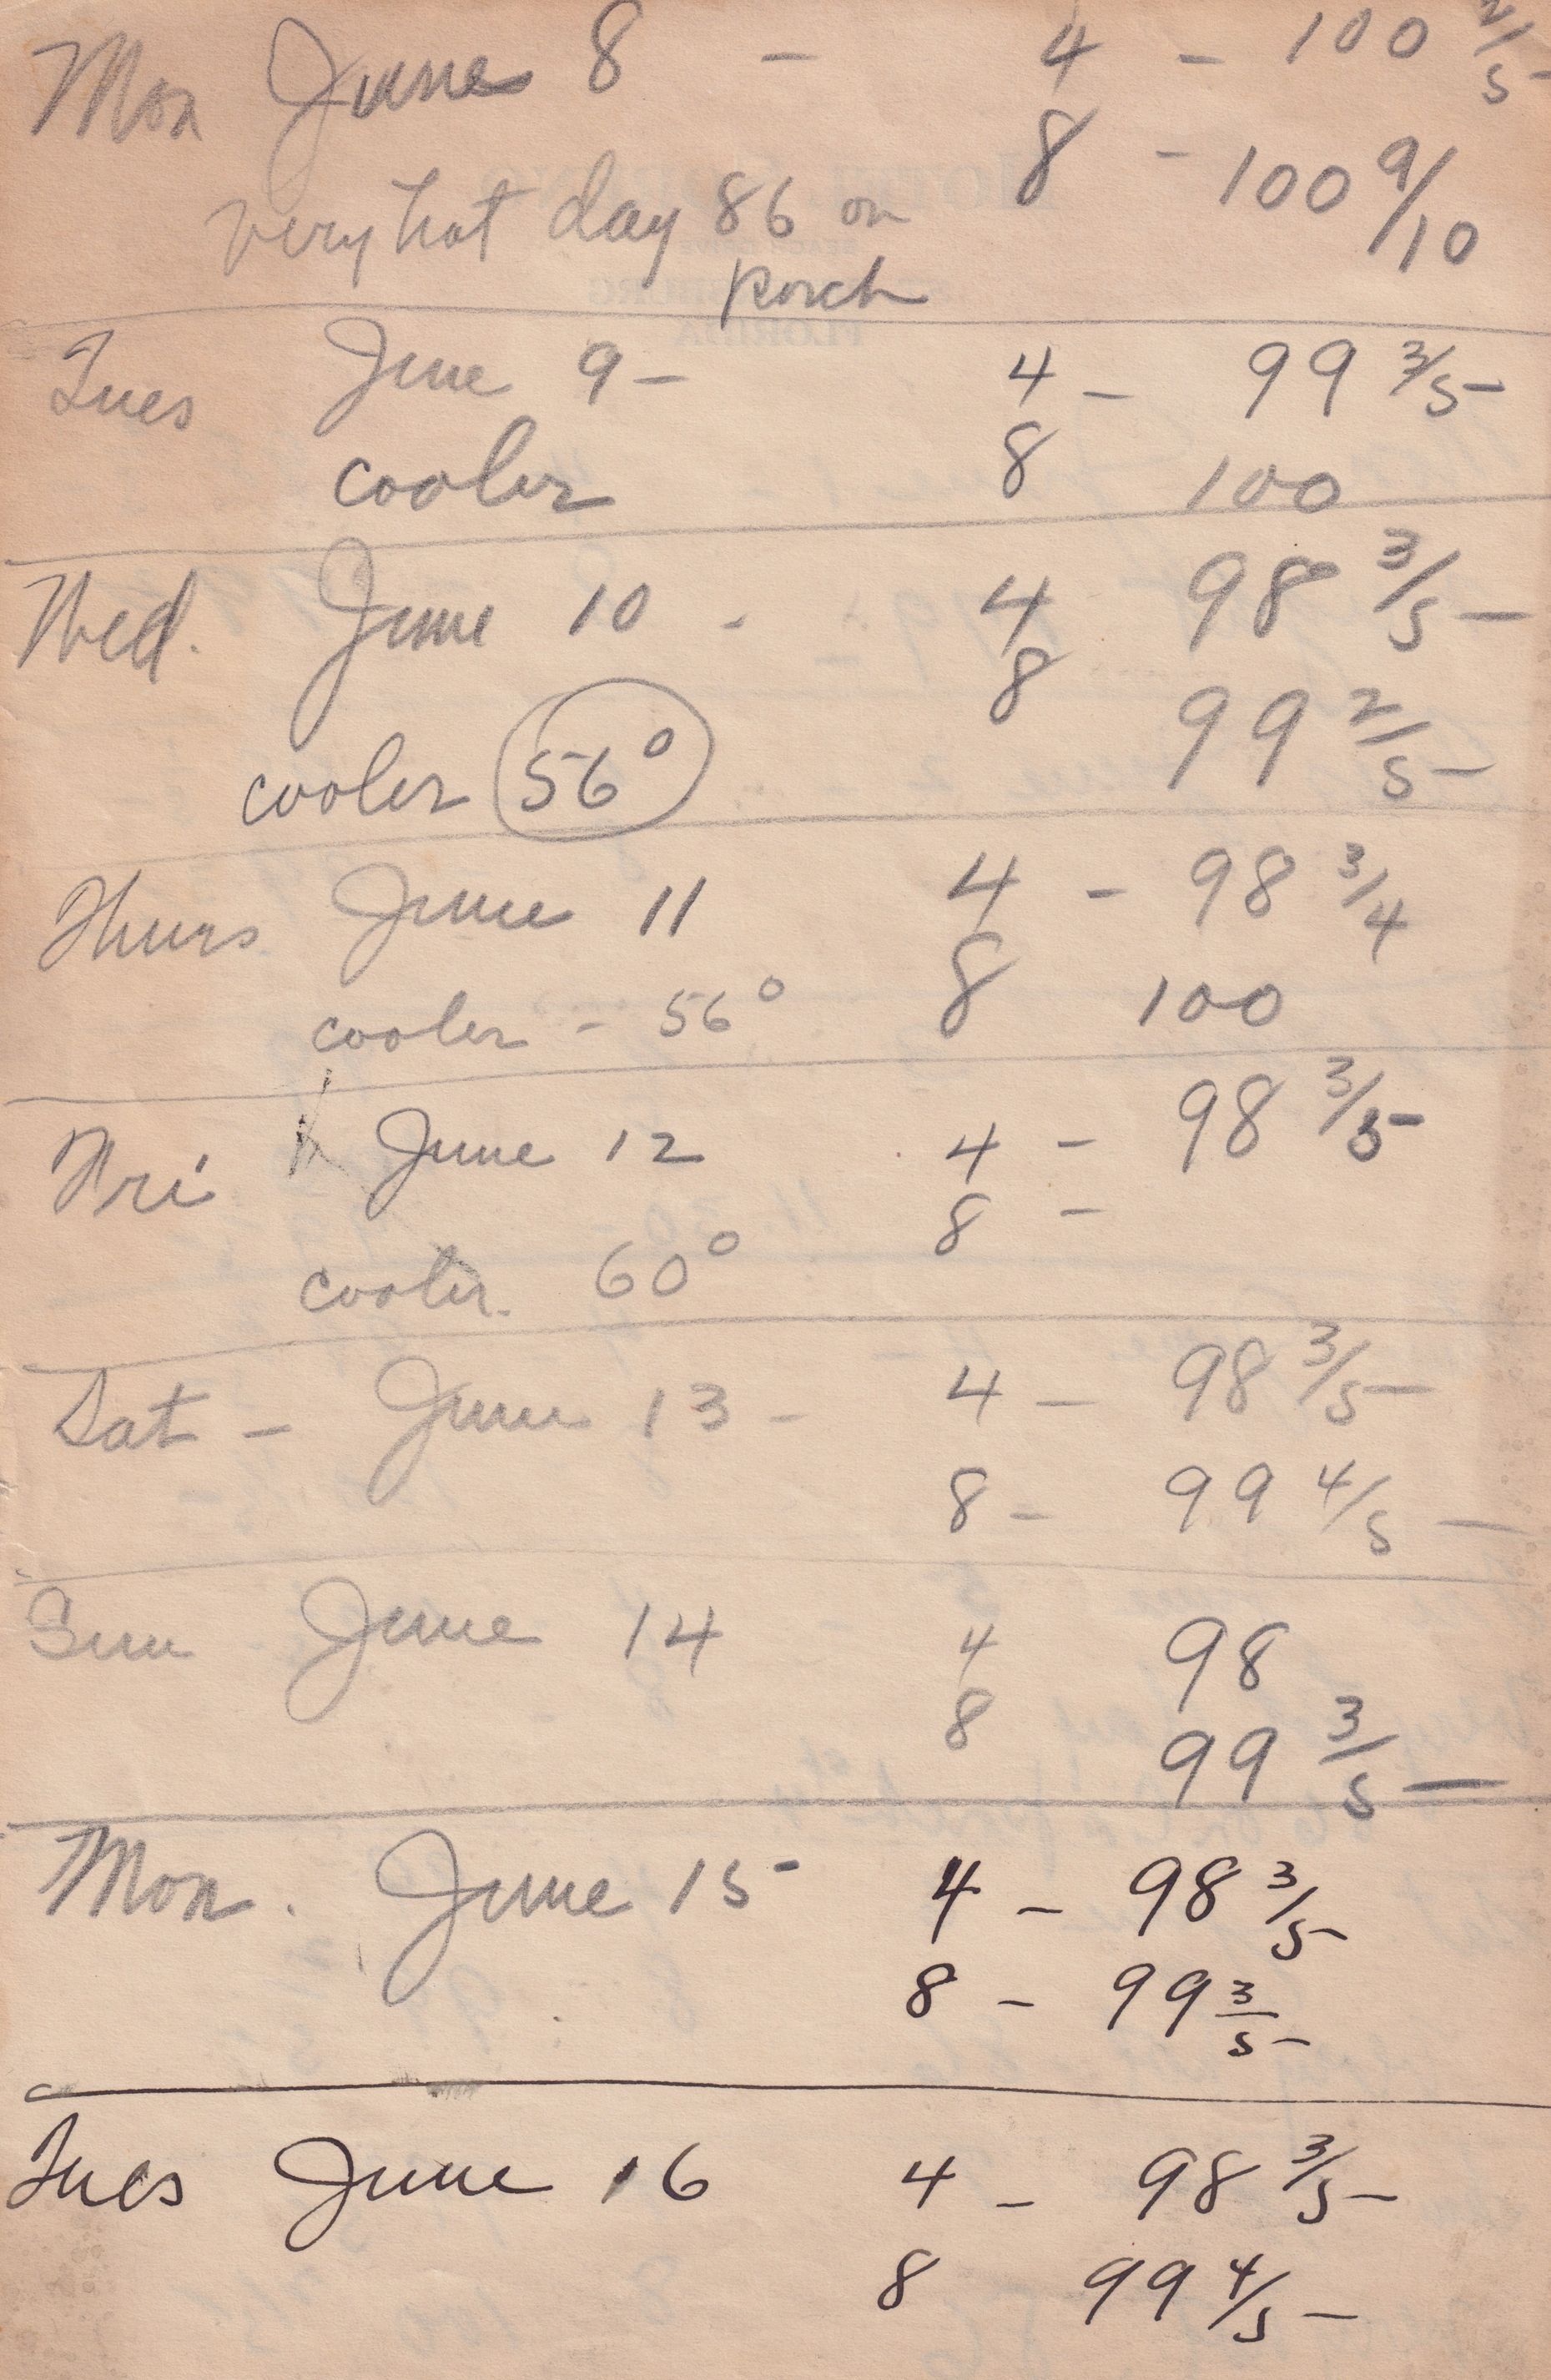 Mon June 8 - 4 - 100 2/5
8 - 100 9/10
very hot day 86 on
porch
Tues June 9 - 4 - 99 3/5
cooler 8 100
Wed. June 10 - 4 98 3/5
8 99 2/5
cooler 56°
Thurs June 11 4 - 98 3/4
cooler - 56° 8 100
Fri June 12 4 - 98 3/5
8 -
cooler. 60°
Sat - June 13 - 4 - 98 3/5
8 - 99 4/5
Sun June 14 4 98
8 99 3/5
Mon. June 15 4 - 98 3/5
8 - 99 3/5
Tues June 16 4 - 98 3/5
8 99 4/5